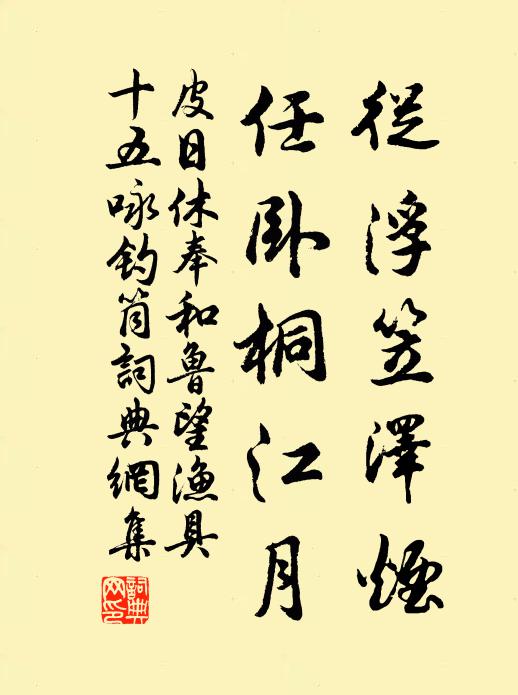 從浮笠澤煙
任卧桐江月
皮日休奉和魯望漁具
十五咏釣筒詞典網集
詞典
网印